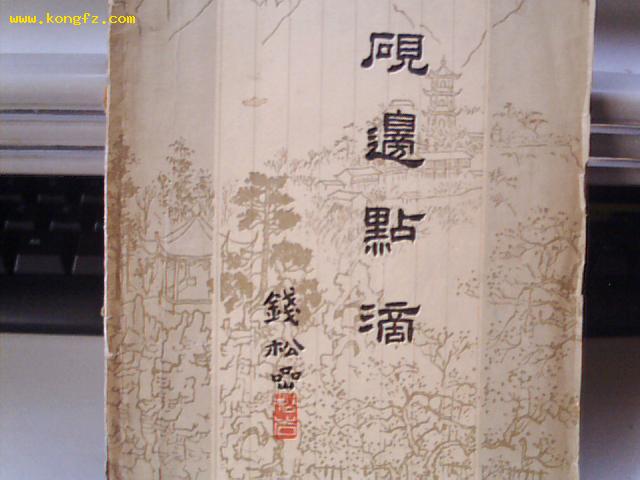 www.kongfz.com
硯邊點滴
錢松嵒